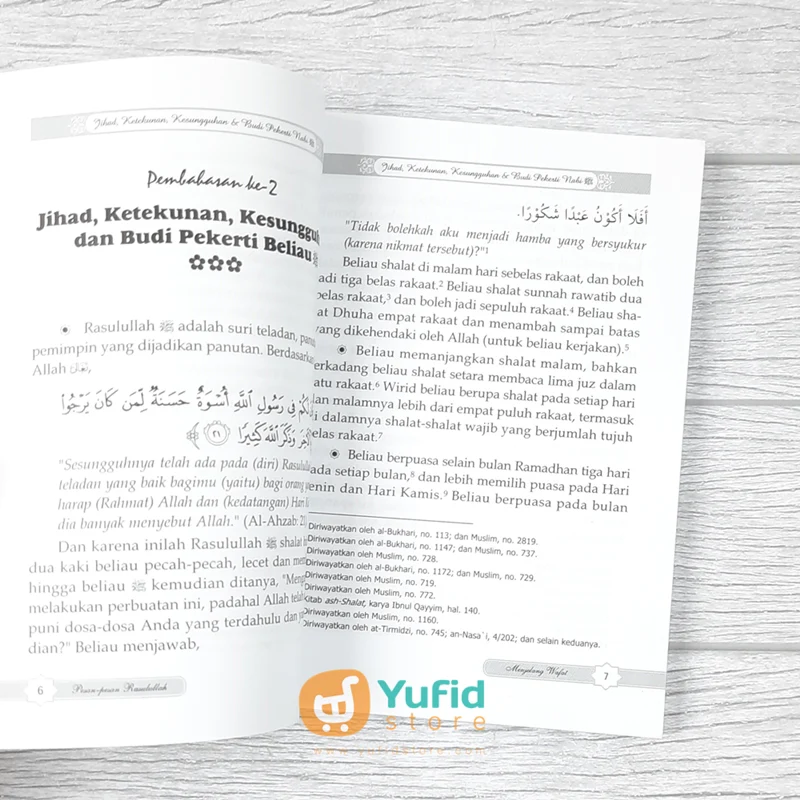 Jihad, Ketekunan, Kesungguhan & Budi Pekerti Nabi ﷺ
Pembahasan ke-2
Jihad, Ketekunan, Kesungguh
dan Budi Pekerti Beliau ﷺ
✿✿✿
◉ Rasulullah ﷺ adalah suri teladan, panu
pemimpin yang dijadikan panutan. Berdasarkan
Allah تعالى,
لَكُمْ فِي رَسُولِ ٱللَّهِ أُسْوَةٌ حَسَنَةٌ لِّمَن كَانَ يَرْجُوا۟
وَذَكَرَ ٱللَّهَ كَثِيرًا ﴿٢١﴾
"Sesungguhnya telah ada pada (diri) Rasulul
teladan yang baik bagimu (yaitu) bagi orang
harap (Rahmat) Allah dan (kedatangan) Hari
dia banyak menyebut Allah." (Al-Ahzab: 21
Dan karena inilah Rasulullah ﷺ shalat
dua kaki beliau pecah-pecah, lecet dan
hingga beliau ﷺ kemudian ditanya, "Meng
melakukan perbuatan ini, padahal Allah telah
puni dosa-dosa Anda yang terdahulu dan
dian?" Beliau menjawab,
6 Pesan-pesan Rasulullah
Jihad, Ketekunan, Kesungguhan & Budi Pekerti Nabi ﷺ
أَفَلَا أَكُوْنُ عَبْدًا شَكُوْرًا.
"Tidak bolehkah aku menjadi hamba yang bersyukur
(karena nikmat tersebut)?"1
Beliau shalat di malam hari sebelas rakaat, dan boleh
jadi tiga belas rakaat.2 Beliau shalat sunnah rawatib dua
belas rakaat,3 dan boleh jadi sepuluh rakaat.4 Beliau sha-
at Dhuha empat rakaat dan menambah sampai batas
yang dikehendaki oleh Allah (untuk beliau kerjakan).5
◉ Beliau memanjangkan shalat malam, bahkan
terkadang beliau shalat setara membaca lima juz dalam
atu rakaat.6 Wirid beliau berupa shalat pada setiap hari
dan malamnya lebih dari empat puluh rakaat, termasuk
di dalamnya shalat-shalat wajib yang berjumlah tujuh
belas rakaat.7
◉ Beliau berpuasa selain bulan Ramadhan tiga hari
pada setiap bulan,8 dan lebih memilih puasa pada Hari
Senin dan Hari Kamis.9 Beliau berpuasa pada bulan
Diriwayatkan oleh al-Bukhari, no. 113; dan Muslim, no. 2819.
Diriwayatkan oleh al-Bukhari, no. 1147; dan Muslim, no. 737.
Diriwayatkan oleh Muslim, no. 728.
Diriwayatkan oleh al-Bukhari, no. 1172; dan Muslim, no. 729.
Diriwayatkan oleh Muslim, no. 719.
Diriwayatkan oleh Muslim, no. 772.
Kitab ash-Shalat, karya Ibnul Qayyim, hal. 140.
Diriwayatkan oleh Muslim, no. 1160.
Diriwayatkan oleh at-Tirmidzi, no. 745; an-Nasa`i, 4/202; dan selain keduanya.
Menjelang Wafat 7
Yufid
store
www.yufidstore.com